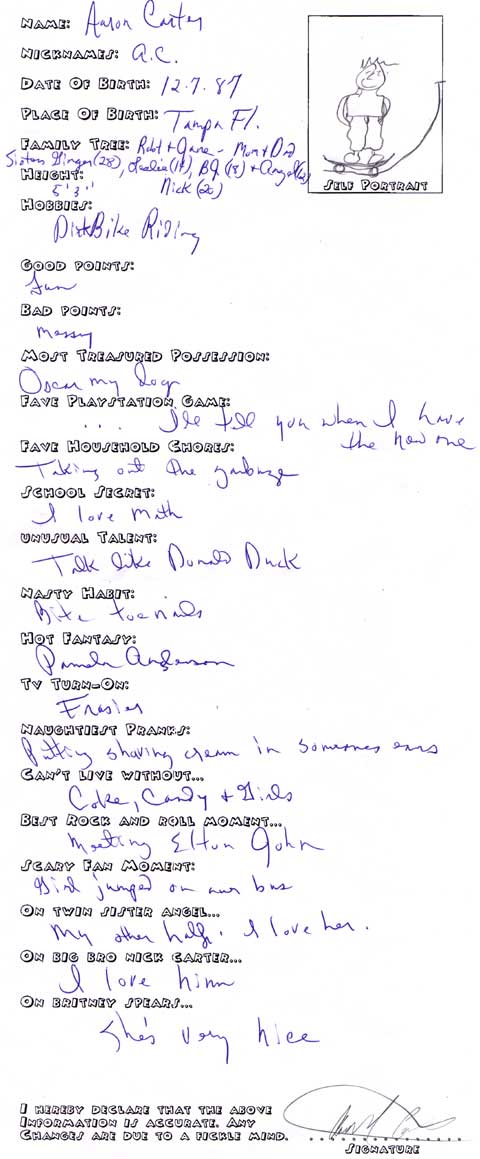 NAME: Aaron Carter
NICKNAMES: A.C.
DATE OF BIRTH: 12.7.87
PLACE OF BIRTH: Tampa Fl.
FAMILY TREE: Robt + Jane - Mom + Dad
Sisters Ginger (28), Leslie (14), BJ (18) + Angel
Nick (20)
HEIGHT:
5'3"
SELF PORTRAIT
HOBBIES:
DirtBike Riding
GOOD POINTS:
Fun
BAD POINTS:
Messy
MOST TREASURED POSSESSION:
Oscar my dog
FAVE PLAYSTATION GAME:
... I'll tell you when I have
the new one
FAVE HOUSEHOLD CHORES:
Taking out the garbage
SCHOOL SECRET:
I love math
UNUSUAL TALENT:
Talk like Donald Duck
NASTY HABIT:
Bite toenails
HOT FANTASY:
Pamela Anderson
TV TURN-ON:
Frasier
NAUGHTIEST PRANKS:
Putting shaving cream in someones ears
CAN'T LIVE WITHOUT...
Coke, Candy + Girls
BEST ROCK AND ROLL MOMENT...
Meeting Elton John
SCARY FAN MOMENT:
Girl jumped on our bus
ON TWIN SISTER ANGEL...
My other half. I love her.
ON BIG BRO NICK CARTER...
I love him
ON BRITNEY SPEARS...
She's very nice
I HEREBY DECLARE THAT THE ABOVE
INFORMATION IS ACCURATE. ANY
CHANGES ARE DUE TO A FICKLE MIND.
SIGNATURE